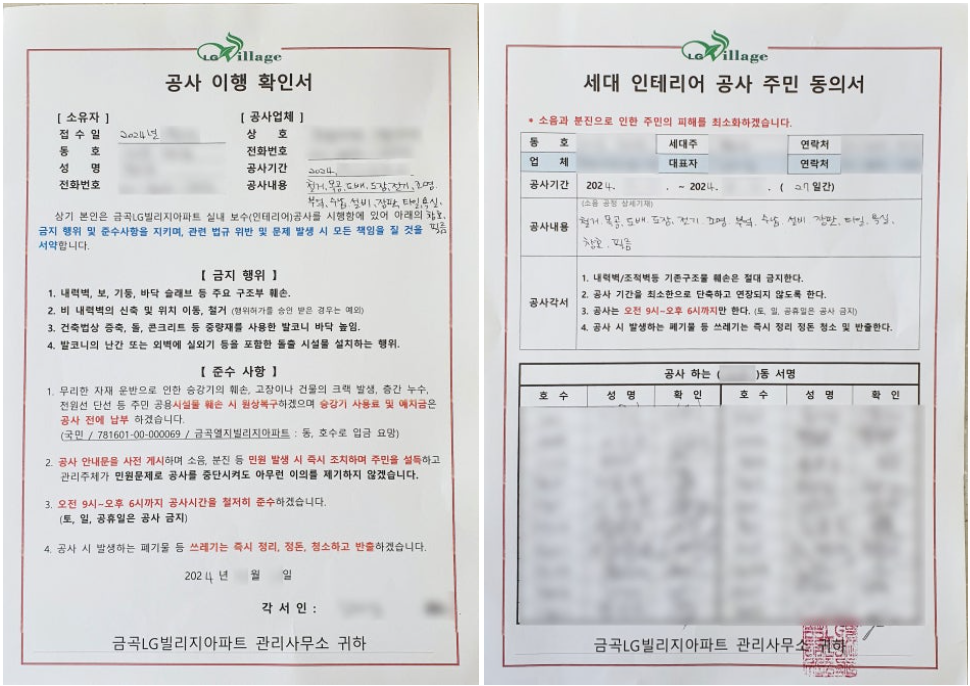 LG Village
공사 이행 확인서
[ 소유자 ]
접 수 일 2024년
동 호
성 명
전화번호
[ 공사업체 ]
상 호
전화번호
공사기간 2024.
공사내용 철거, 목공, 도배, 도장, 전기, 조명,
부엌, 수납, 설비, 장판, 타일, 욕실,
창호,
필름
상기 본인은 금곡LG빌리지아파트 실내 보수(인테리어)공사를 시행함에 있어 아래의
금지 행위 및 준수사항을 지키며, 관련 법규 위반 및 문제 발생 시 모든 책임을 질 것을
서약합니다.
[ 금지 행위 ]
1. 내력벽, 보, 기둥, 바닥 슬래브 등 주요 구조부 훼손.
2. 비 내력벽의 신축 및 위치 이동, 철거 (행위허가를 승인 받은 경우는 예외)
3. 건축법상 증축, 돌, 콘크리트 등 중량재를 사용한 발코니 바닥 높임.
4. 발코니의 난간 또는 외벽에 실외기 등을 포함한 돌출 시설물 설치하는 행위.
[ 준수 사항 ]
1. 무리한 자재 운반으로 인한 승강기의 훼손, 고장이나 건물의 크랙 발생, 층간 누수,
전원선 단선 등 주민 공용시설물 훼손 시 원상복구하겠으며 승강기 사용료 및 예치금은
공사 전에 납부 하겠습니다.
(국민 / 781601-00-000069 / 금곡엘지빌리지아파트 : 동, 호수로 입금 요망)
2. 공사 안내문을 사전 게시하며 소음, 분진 등 민원 발생 시 즉시 조치하며 주민을 설득하고
관리주체가 민원문제로 공사를 중단시켜도 아무런 이의를 제기하지 않겠습니다.
3. 오전 9시~오후 6시까지 공사시간을 철저히 준수하겠습니다.
(토, 일, 공휴일은 공사 금지)
4. 공사 시 발생하는 폐기물 등 쓰레기는 즉시 정리, 정돈, 청소하고 반출하겠습니다.
2024 년 월 일
각 서 인 :
금곡LG빌리지아파트 관리사무소 귀하
LG Village
세대 인테리어 공사 주민 동의서
* 소음과 분진으로 인한 주민의 피해를 최소화하겠습니다.
동 호 세대주 연락처
업 체 대표자 연락처
공사기간 2024. . ~ 2024. . ( 27일간)
공사내용
(소음 공정 상세기재)
철거 목공, 도배, 도장, 전기, 조명, 부엌, 수납, 설비, 장판, 타일, 욕실,
창호, 필름
공사각서
1. 내력벽/조적벽등 기존구조물 훼손은 절대 금지한다.
2. 공사 기간을 최소한으로 단축하고 연장되지 않도록 한다.
3. 공사는 오전 9시~오후 6시까지만 한다. (토, 일, 공휴일은 공사 금지)
4. 공사 시 발생하는 폐기물 등 쓰레기는 즉시 정리 정돈 청소 및 반출한다.
공사 하는 ( )동 서명
호 수 성 명 확 인 호 수 성 명 확 인
금곡LG빌리지아파트 관리사무소 귀하